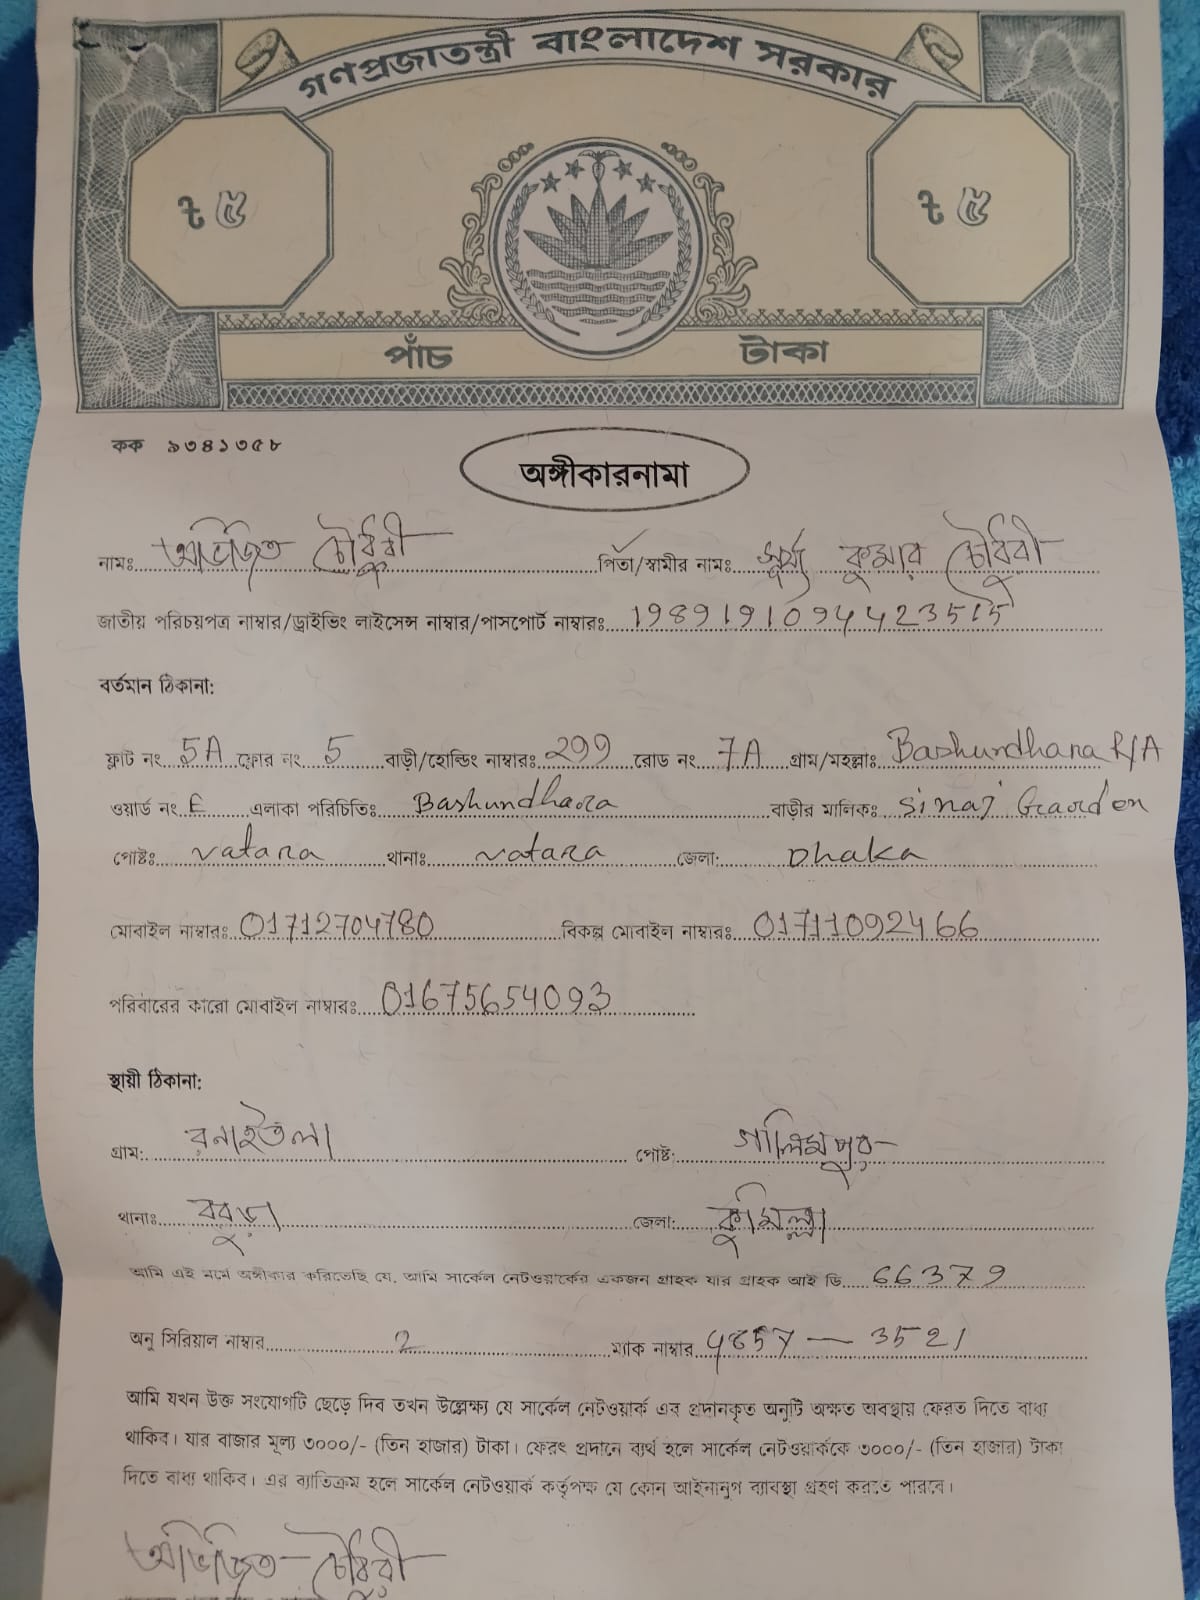 গণপ্রজাতন্ত্রী বাংলাদেশ সরকার
৳ ৫ ৳ ৫
পাঁচ টাকা
কক ৯৩৪১৩৫৮
অঙ্গীকারনামা
নামঃ অভিজিত চৌধুরী পিতা/স্বামীর নামঃ সূর্য্য কুমার চৌধুরী
জাতীয় পরিচয়পত্র নাম্বার/ড্রাইভিং লাইসেন্স নাম্বার/পাসপোর্ট নাম্বারঃ 19891910944423515
বর্তমান ঠিকানা:
ফ্লাট নং 5A ফ্লোর নং 5 বাড়ী/হোল্ডিং নাম্বারঃ 299 রোড নং 7A গ্রাম/মহল্লাঃ Bashundhara R/A
ওয়ার্ড নং E এলাকা পরিচিতিঃ Bashundhara বাড়ীর মালিকঃ Siraj Gaarden
পোষ্টঃ vatara থানাঃ vatara জেলা: Dhaka
মোবাইল নাম্বারঃ 01712704780 বিকল্প মোবাইল নাম্বারঃ 01711092466
পরিবারের কারো মোবাইল নাম্বারঃ 01675654093
স্থায়ী ঠিকানা:
গ্রাম: পোষ্ট: গালিমপুর
থানাঃ বরুড়া জেলা: কুমিল্লা
আমি এই মর্মে অঙ্গীকার করিতেছি যে, আমি সার্কেল নেটওয়ার্কের একজন গ্রাহক যার গ্রাহক আই ডি 66379
অনু সিরিয়াল নাম্বার 2 ম্যাক নাম্বার 4857 — 3521
আমি যখন উক্ত সংযোগটি ছেড়ে দিব তখন উল্লেক্ষ্য যে সার্কেল নেটওয়ার্ক এর প্রদানকৃত অনুটি অক্ষত অবস্থায় ফেরত দিতে বাধ্য
থাকিব। যার বাজার মূল্য ৩০০০/- (তিন হাজার) টাকা। ফেরৎ প্রদানে ব্যর্থ হলে সার্কেল নেটওয়ার্ককে ৩০০০/- (তিন হাজার) টাকা
দিতে বাধ্য থাকিব। এর ব্যাতিক্রম হলে সার্কেল নেটওয়ার্ক কর্তৃপক্ষ যে কোন আইনানুগ ব্যাবস্থা গ্রহণ করতে পারবে।
অভিজিত চৌধুরী